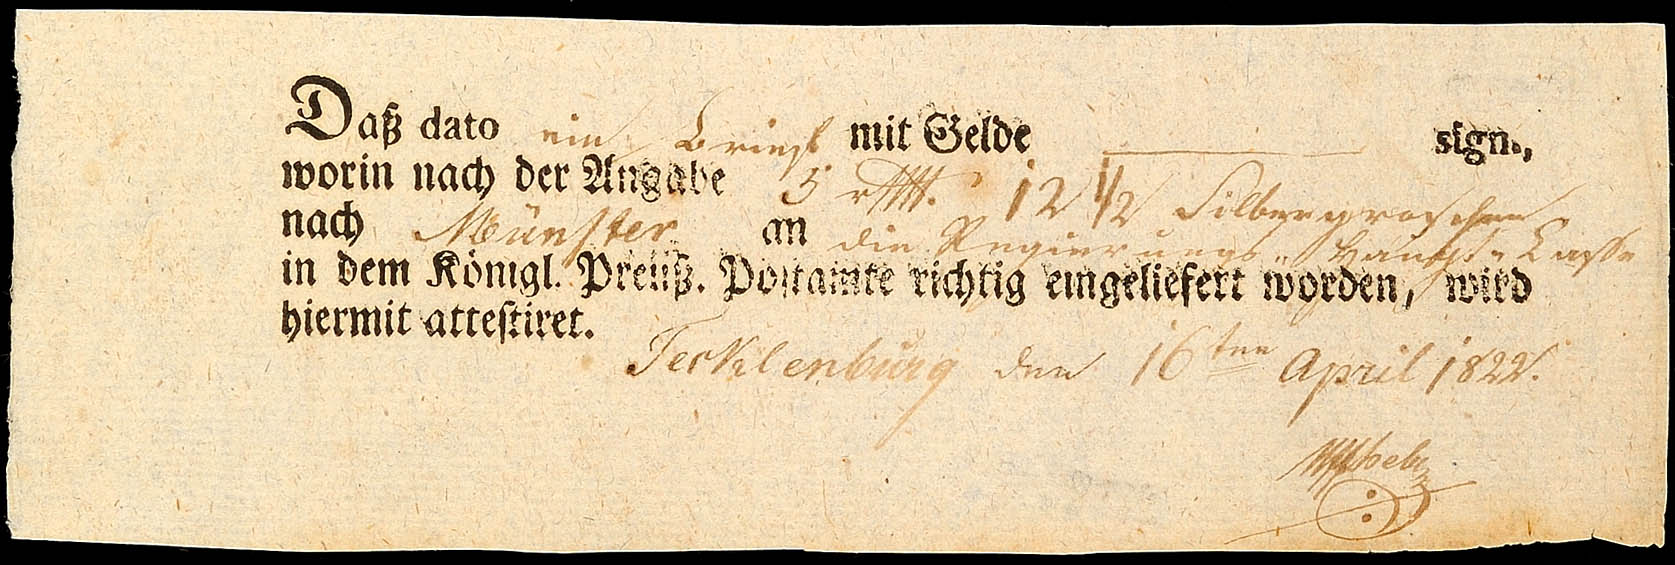 Daß dato ein Brief mit Gelde sign.,
worin nach der Angabe 5 12 1/2 Silbergroschen
nach Münster an die Regierungs-Haupt-Casse
in dem Königl. Preuß. Postamte richtig eingeliefert worden, wird
hiermit attestiret.
Tecklenburg den 16ten April 1822.